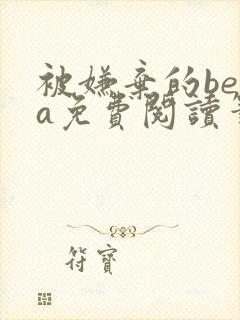 被嫌棄的be
a免費閱讀
符寶